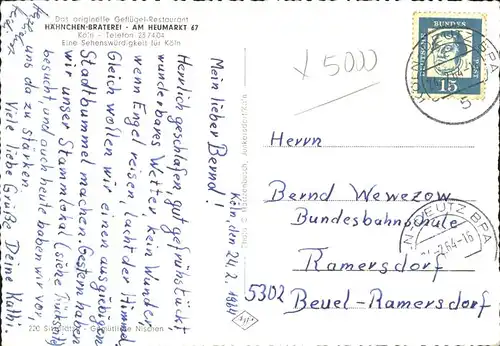 Das originelle Geflügel-Restaurant
HÄHNCHEN-BRATEREI · AM HEUMARKT 67
Köln - Telefon 257404
Eine Sehenswürdigkeit für Köln
Köln, den 24.2.1964
Mein lieber Bernd!
Herrlich geschlafen, gut gefrühstückt
wunderbares Wetter, kein Wunder
wenn Engel reisen, lacht der Himmel.
Gleich wollen wir einen ausgiebigen
Stadtbummel machen. Gestern haben
wir unser Stammlokal (siehe Rückseite)
besucht, und auch heute haben wir vor,
uns da zu stärken.
Viele liebe Grüße Deine Kathi.
220 Sitzplätze - Gemütliche Nischen
x 5000
DEUTSCHE
BUNDESPOST
15
KÖLN
BPA
5
Herrn
Bernd Wewezow
Bundesbahnschule
KÖLN-DEUTZ BPA
2.64-16
Ramersdorf
5302 Beuel-Ramersdorf